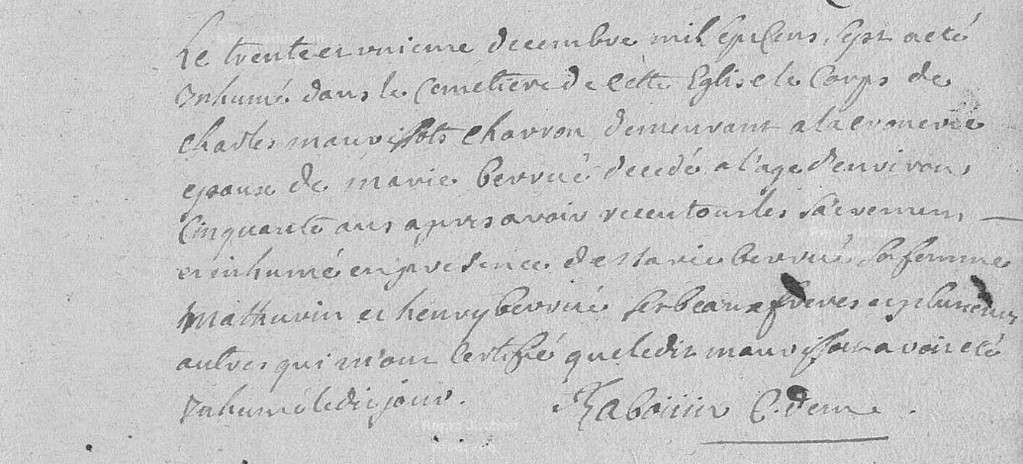 Le trente et unieme decembre mil sept cens sept a eté
Inhumé dans le Cemetiere de cette Eglise le Corps de
charles mauvissots charron demeurant a la
epoux de marie berrué decedé a l'age d'environ
Cinquante ans apres avoir receu tous les sacremens
et inhumé en presence de Marie berrué sa femme
Mathurin et henry berrué ses beaux freres et plusieurs
autres qui m'ont Certifié que ledit mauvissot avoit eté
Inhumé ledit jour.